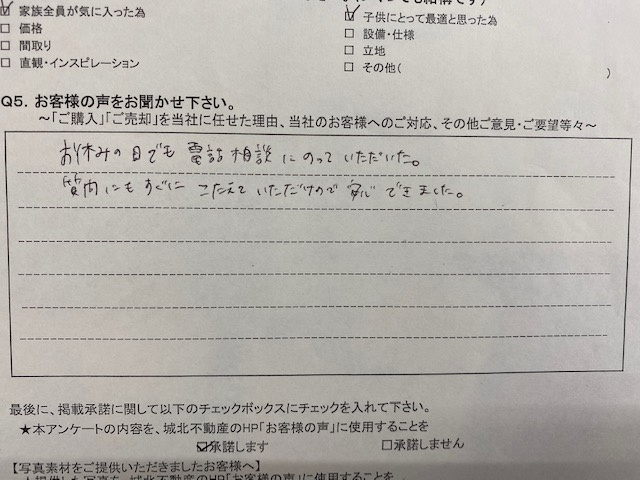 ☑ 家族全員が気に入った為
☑ 子供にとって最適と思った為
☐ 価格
☐ 設備・仕様
☐ 間取り
☐ 立地
☐ 直観・インスピレーション
☐ その他( )
Q5. お客様の声をお聞かせ下さい。
～「ご購入」「ご売却」を当社に任せた理由、当社のお客様へのご対応、その他ご意見・ご要望等々～
お休みの日でも電話相談にのっていただいた。
質問にもすぐにこたえていただけるので安心できました。
最後に、掲載承諾に関して以下のチェックボックスにチェックを入れて下さい。
★本アンケートの内容を、城北不動産のHP「お客様の声」に使用することを
☑承諾します ☐承諾しません
【写真素材をご提供いただきましたお客様へ】